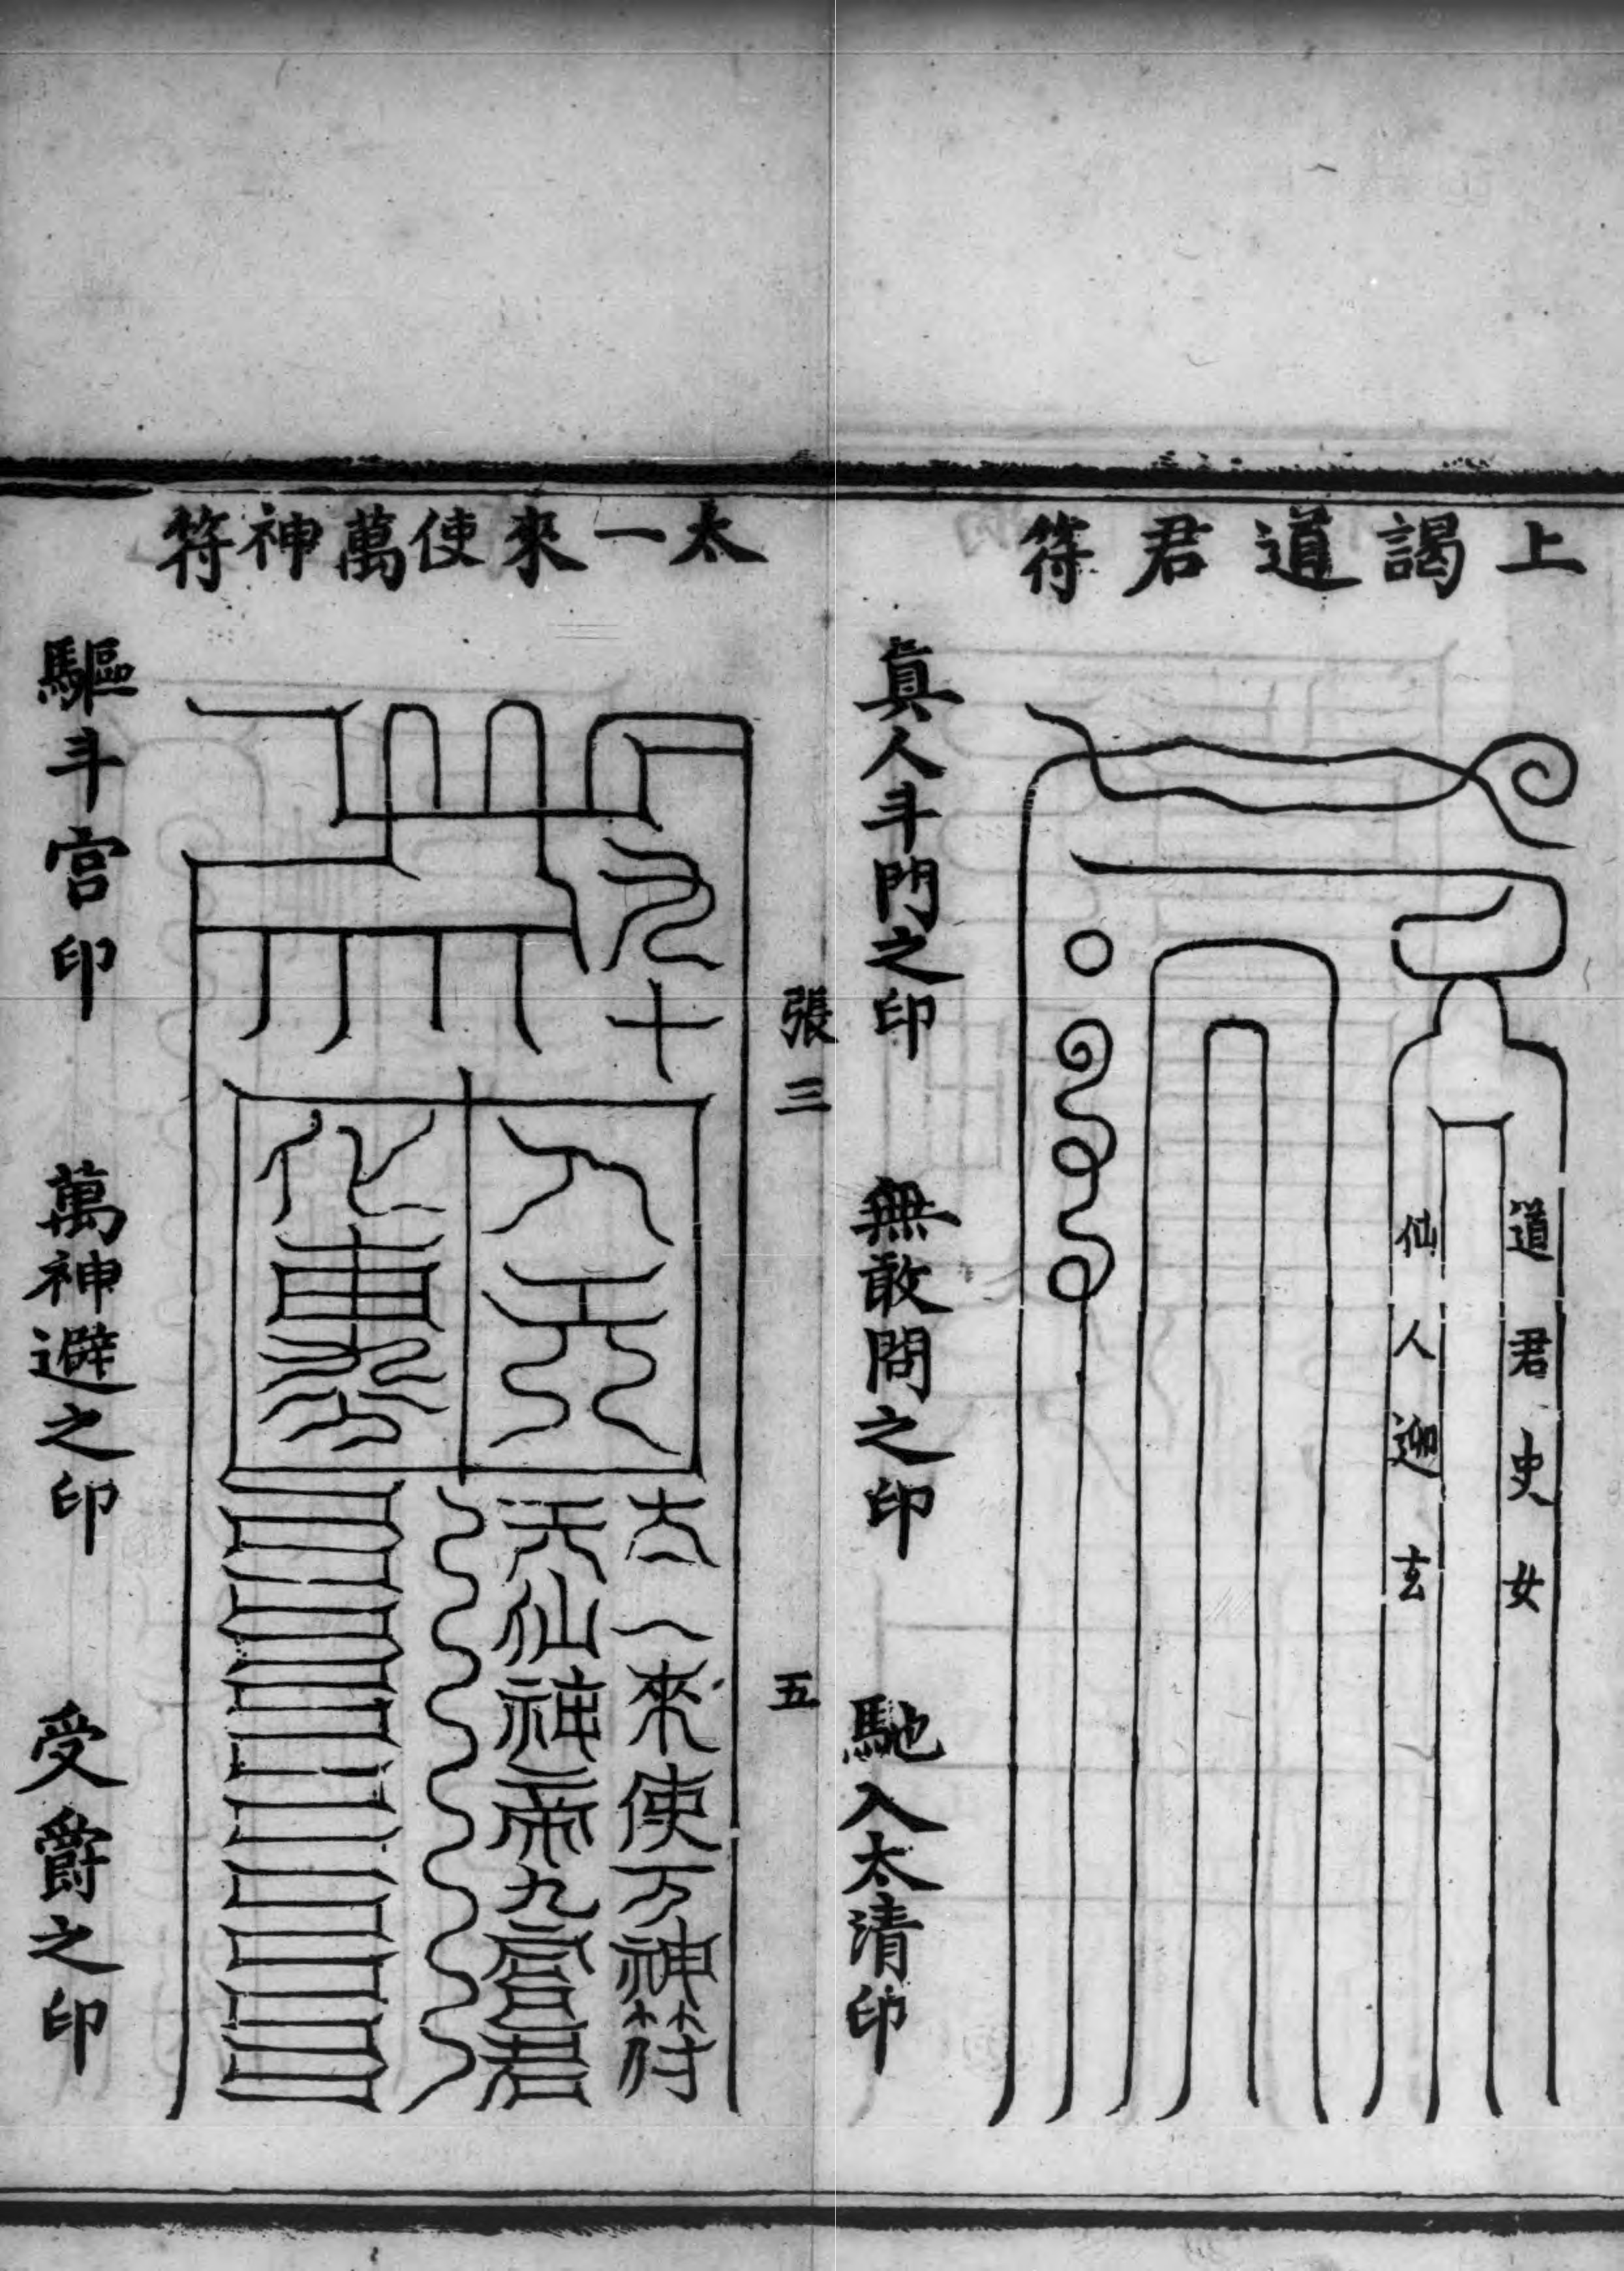 上謁道君符
道君史女
仙人迦玄
真人斗門之印
無敢問之印
馳入太清印
張三
五
太一來使萬神符
九十
太一來使万神符
天仙神帝九宮君
驅斗宮印
萬神避之印
受爵之印